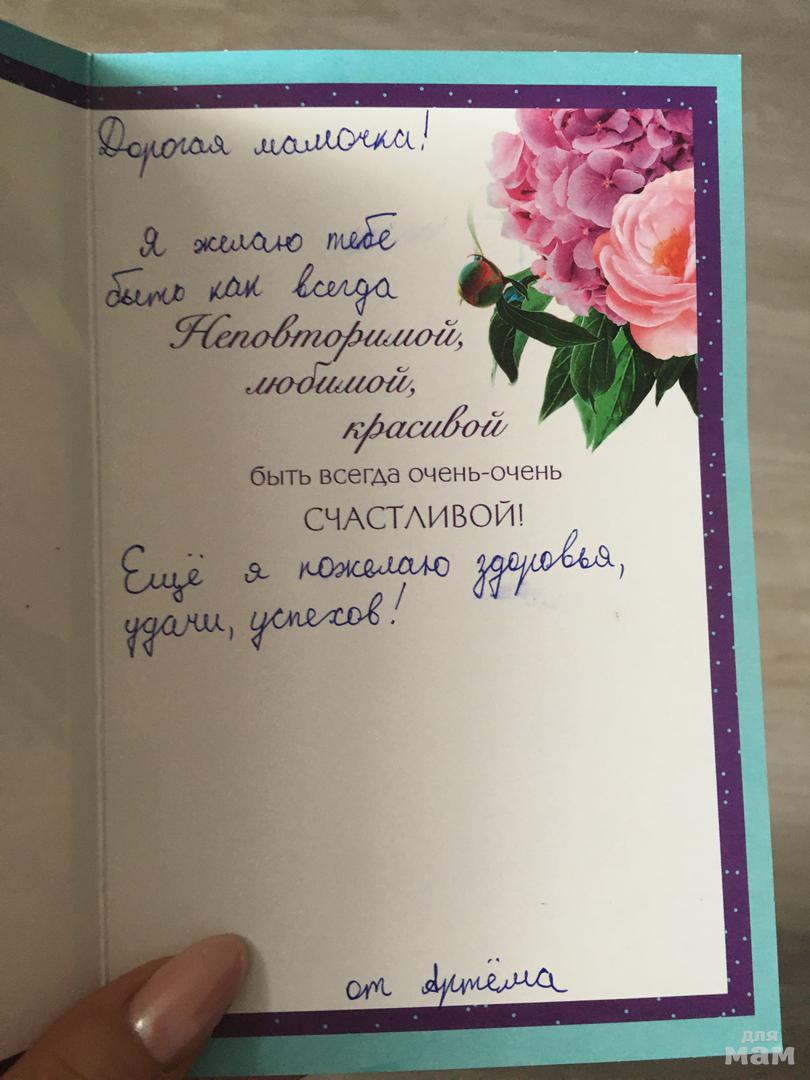 Дорогая мамочка!
Я желаю тебе
быть как всегда
Неповторимой,
любимой,
красивой
быть всегда очень-очень
СЧАСТЛИВОЙ!
Ещё я пожелаю здоровья,
удачи, успехов!
от Артёма
для
мам